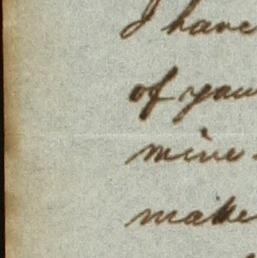 I have
of you
mine
make